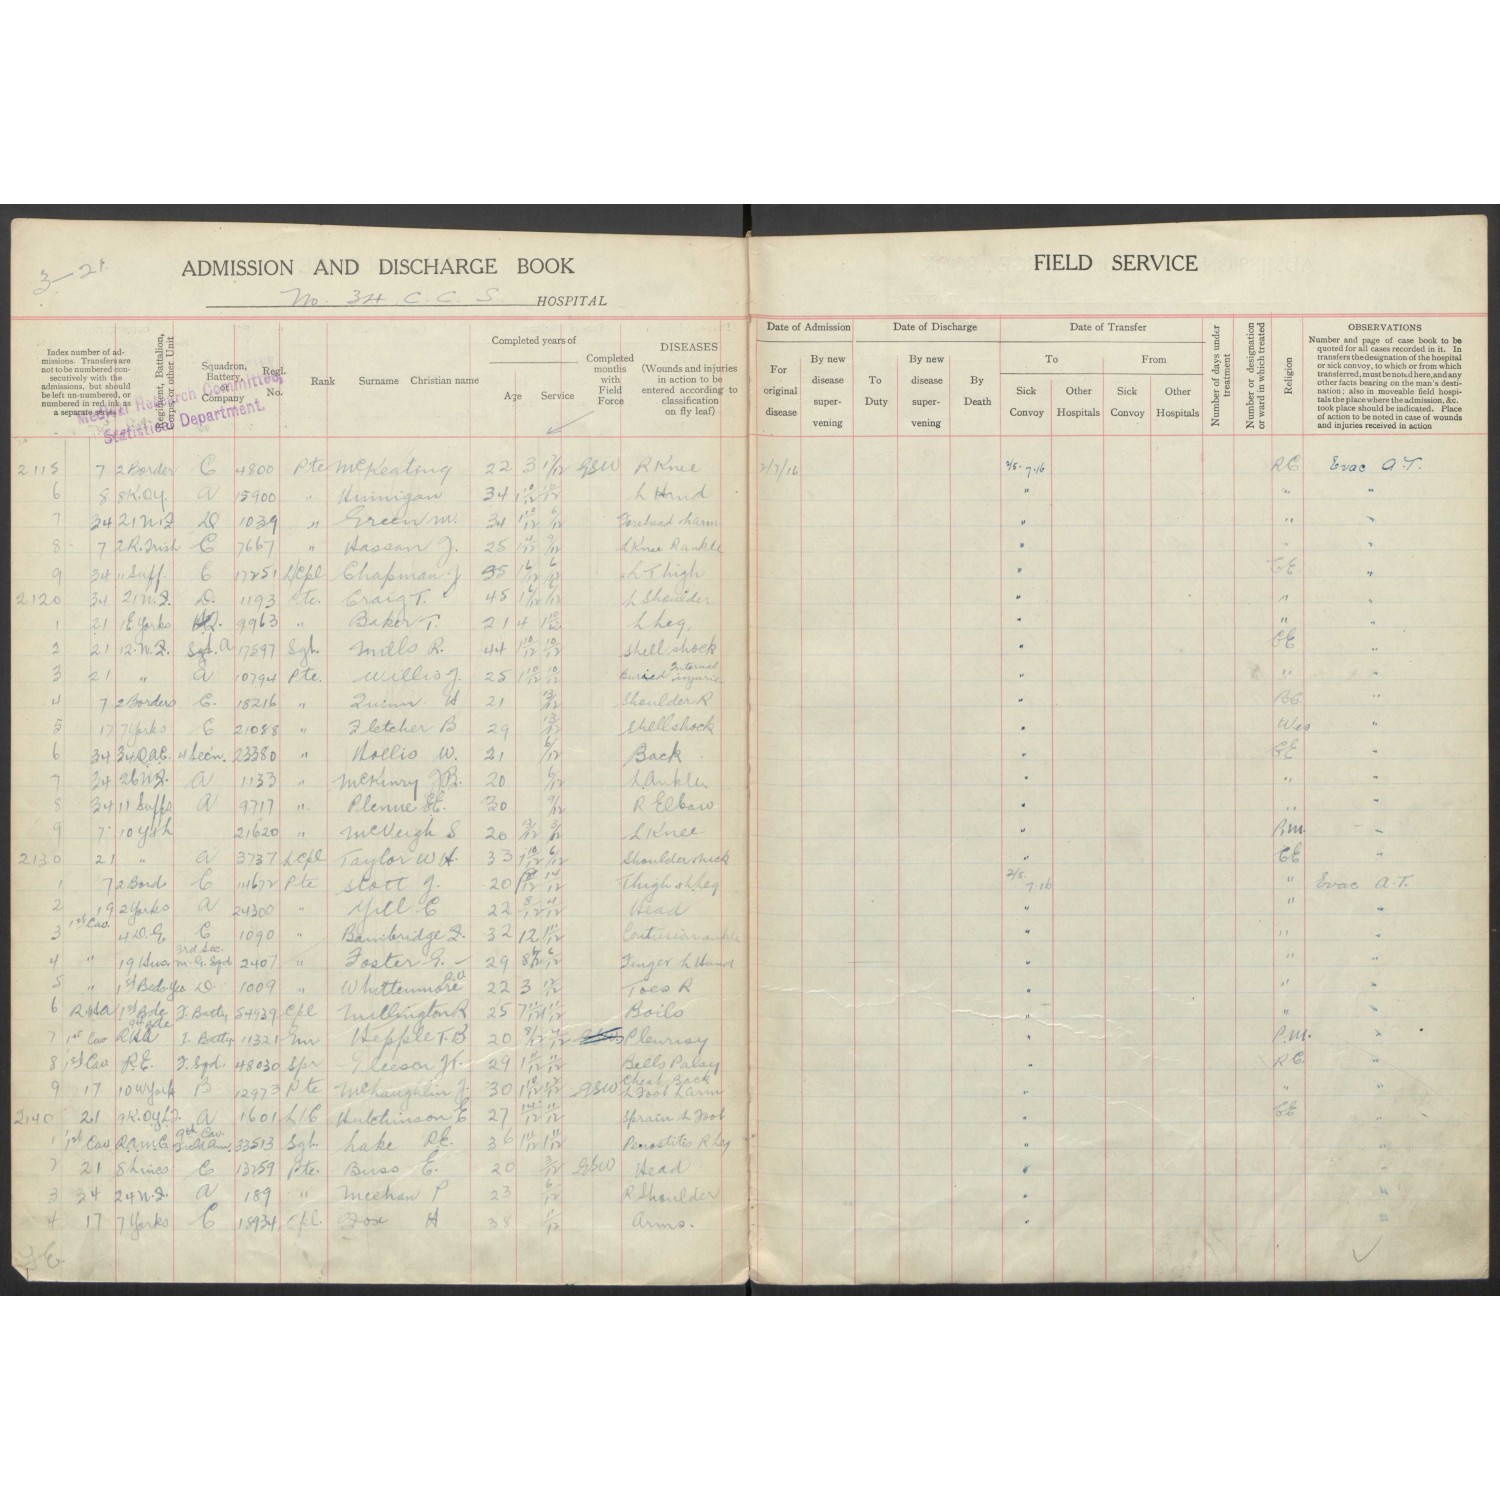 3-21
ADMISSION AND DISCHARGE BOOK
No. 34 C. C. S. HOSPITAL
FIELD SERVICE
Index number of admissions. Transfers are not to be numbered consecutively with the admissions, but should be left un-numbered, or numbered in red ink as a separate series.
Regiment, Battalion, Corps, or other Unit
Squadron, Battery, or Company
Regl. No.
Rank
Surname Christian name
Completed years of
Age Service
Completed months with Field Force
DISEASES
(Wounds and injuries in action to be entered according to classification on fly leaf)
Medical Research Committee,
Statistical Department.
Date of Admission
For original disease
By new disease supervening
Date of Discharge
To Duty
By new disease supervening
By Death
Date of Transfer
To From
Sick Convoy
Other Hospitals
Sick Convoy
Other Hospitals
Number of days under treatment
Number or designation of ward in which treated
Religion
OBSERVATIONS
Number and page of case book to be quoted for all cases recorded in it. In transfers the designation of the hospital or sick convoy, to which or from which transferred, must be noted here, and any other facts bearing on the man's destination; also in moveable field hospitals the place where the admission, &c. took place should be indicated. Place of action to be noted in case of wounds and injuries received in action
2115 7 2 Border C 4800 Pte McKeating 22 3 GSW R Knee 2/7/16 RC Evac A.T.
6 8 A 15900 " Hinnigan 34 L Hand " " "
7 34 21 N.F. D 1039 " Green M. 34 " "
8 7 2 R. Irish C 7667 " Hassan J. 25 "
9 34 11 Suff. C 17251 L/Cpl Chapman J 35 L Thigh " CE "
2120 34 21 N.F. D. 1193 Pte. Craig T. 45 L Shoulder " "
1 21 1 E Yorks 9963 " Baker T. 21 4 L Leg. " "
2 21 12. N.F. A 17597 Sgt. Mills R. 44 Shell shock " CE "
3 21 " A 10794 Pte. Willis J. 25 Buried Internal injuries " " "
4 7 2 Borders C. 18216 " Quinn H 21 Shoulder R " RC
5 17 7 Yorks C 21088 " Fletcher B 29 Shellshock " Wes "
6 34 34 DAC. 4 Secn. 23380 " Hollis W. 21 Back " CE "
7 34 26 N.F. A 1133 " McKinry 20 L Ankle " " "
8 34 11 Suffs A 9717 " 30 R Elbow " "
9 7 10 York 21620 " McVeigh S 20 L Knee "
2130 21 " A 3737 L Cpl Taylor W H. 33 Shoulder neck " CE "
1 7 2 Bord C Pte Scott J. 20 Thigh & Leg " Evac A.T.
2 19 2 Yorks A 24300 " Yill C 22 Head " " "
3 1st Cav. 4 D.G. C 1090 " Bambridge F. 32 12 Contusion ankle " " "
4 " 19 Hus. 3rd Sec. M.G. Sqd 2407 " Foster G. 29 Finger L Hand " " "
5 " 1st Beds Yeo D. 1009 " Whittenmore 22 3 Toes R " "
6 R.H.A 1st Bde. Batty 54939 Cpl Millington R 25 Boils " "
7 1st Cav RHA Batty 11321 Gnr Hepple T.B 20 Pleurisy " "
8 1st Cav R.E. F. Sqd. 48030 Spr Gleeson 29 Bells Palsy " RC "
9 17 10 W York B 12973 Pte McLaughlin J. 30 GSW Chest Back L Foot L Arm " " "
2140 21 9 K.OYLI. A 1601 L/C Hutchinson E 27 Sprain L Foot " CE "
1 1st Cav R.A.M.C. 9th Cav. Field Amb. 33513 Sgt. Lake 36 Periostitis R Leg "
2 21 8 Lincs C 13259 Pte. Buss E. 20 GSW Head "
3 34 24 N.F. A 189 " Meehan P 23 R Shoulder " "
4 17 7 Yorks C 18934 Cpl. Fox H 38 Arms. " "